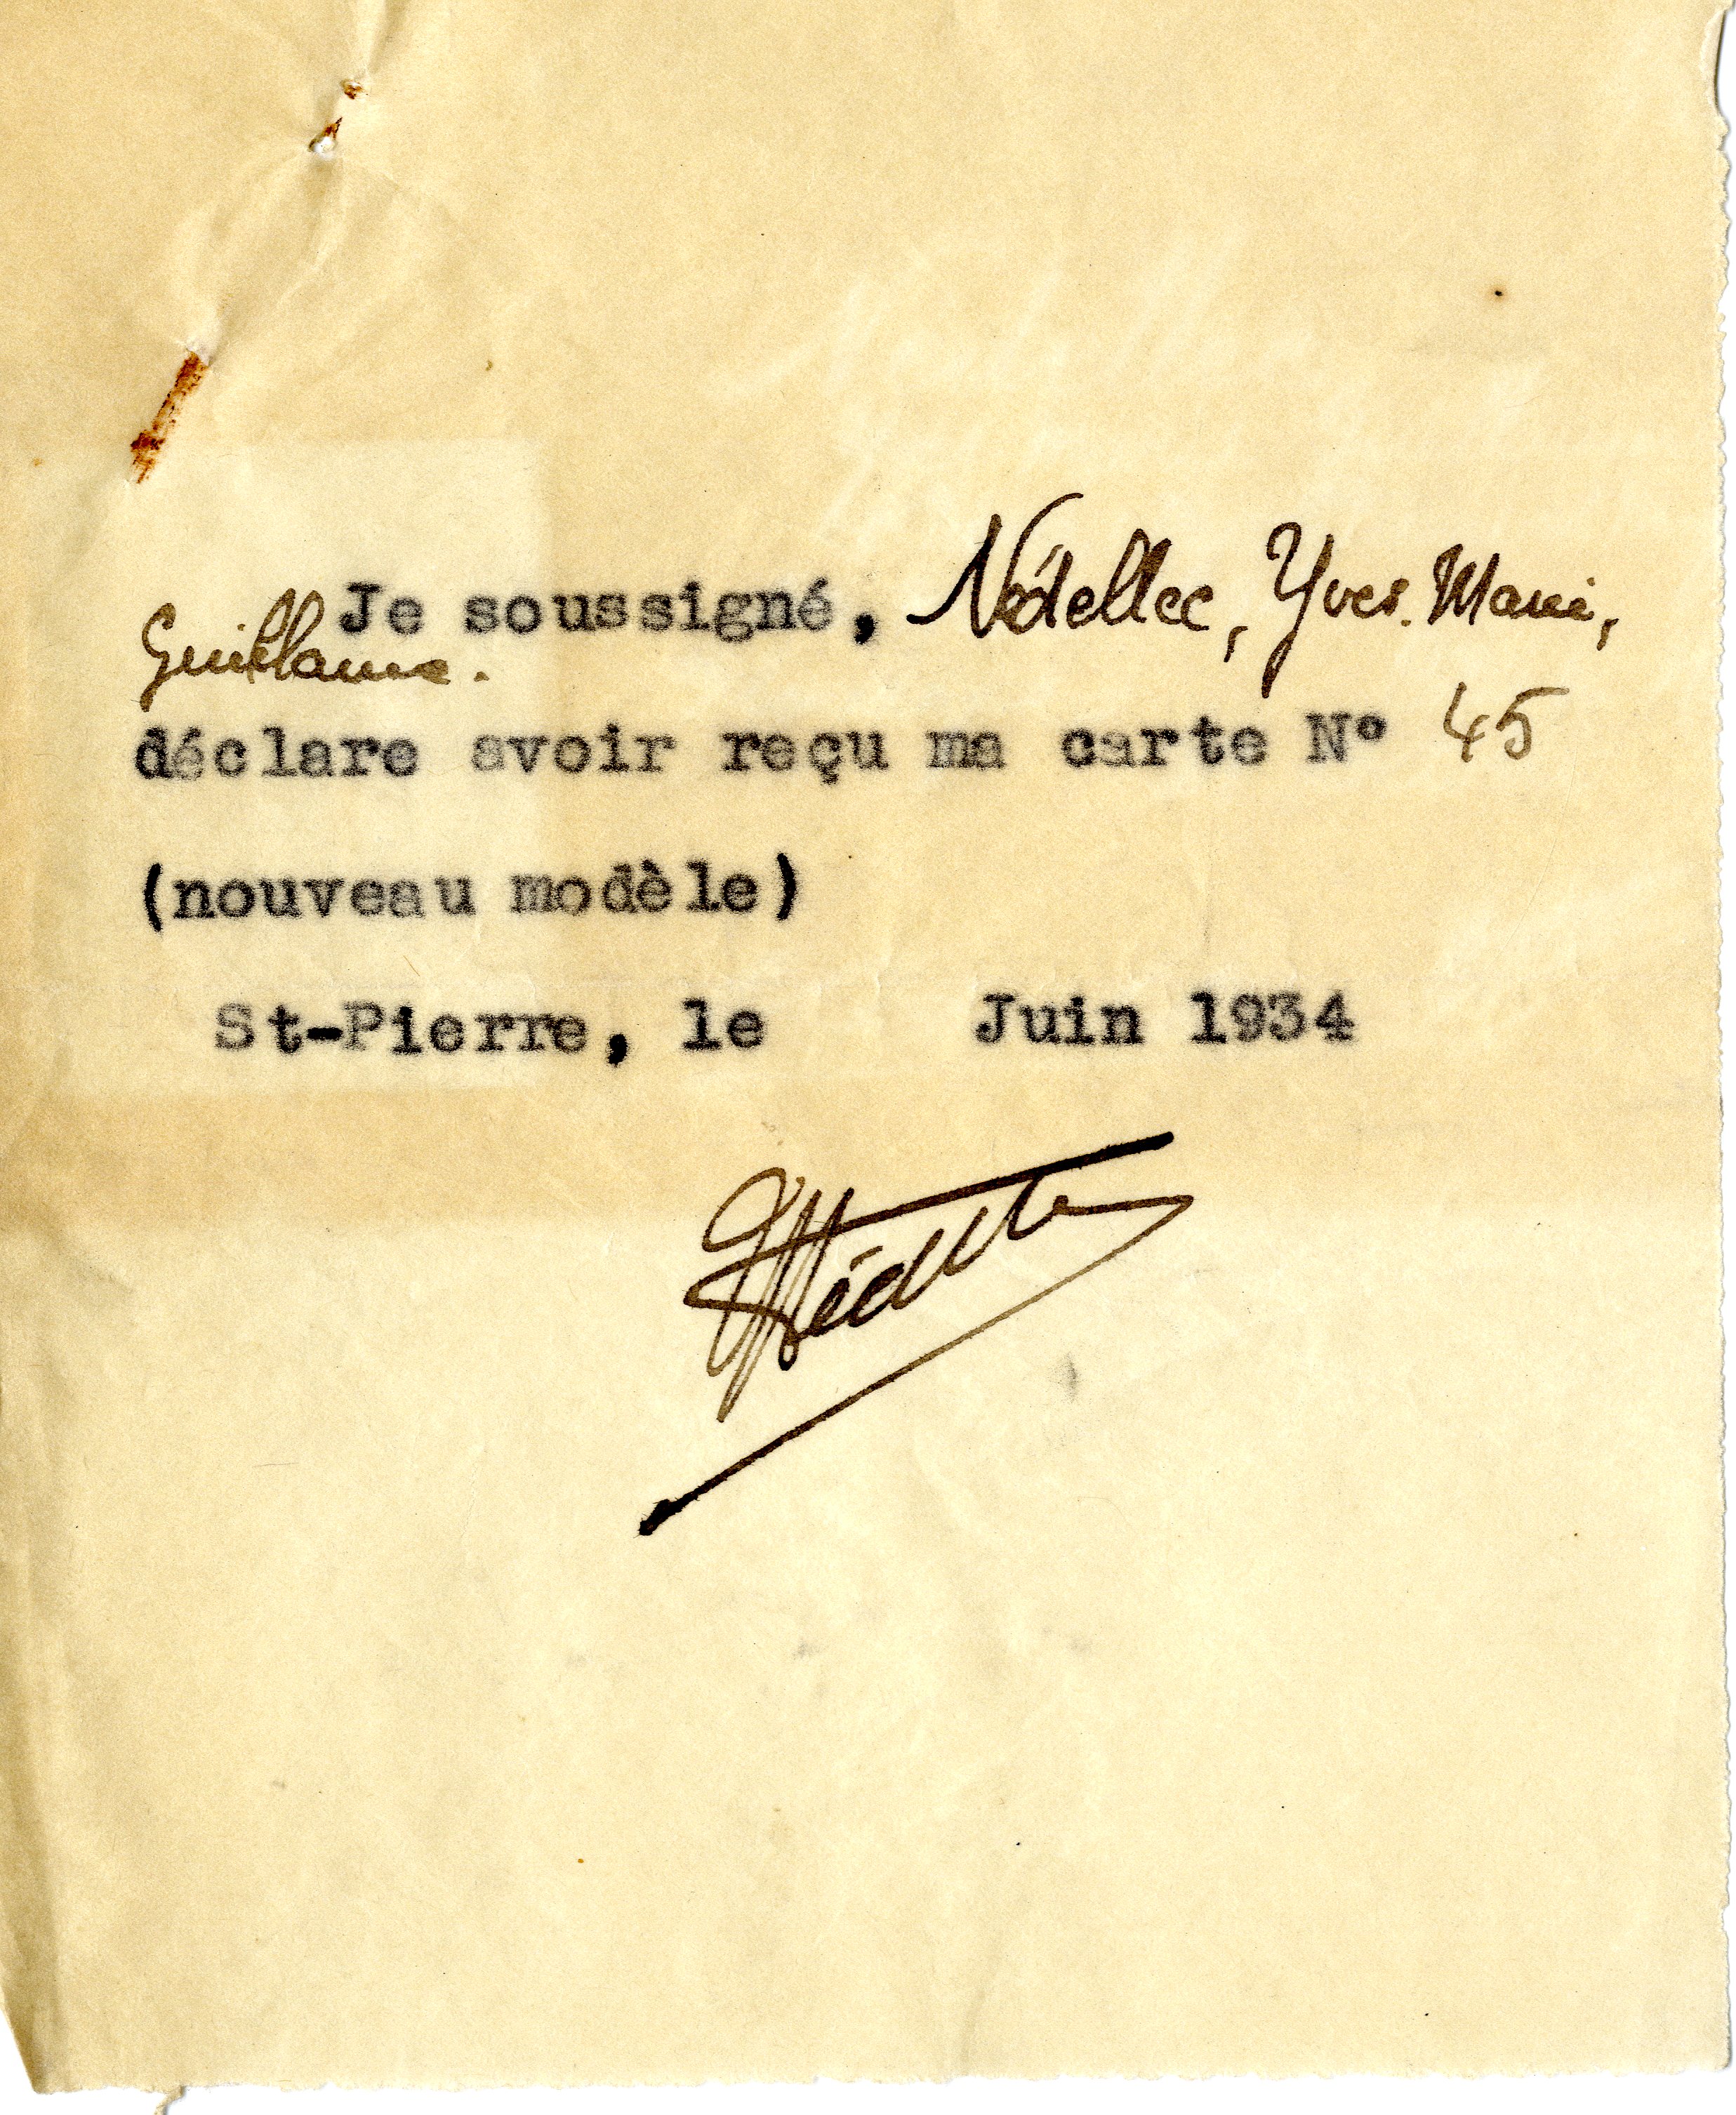 Je soussigné, Nédellec, Yves. Marie,
Guillaume.
déclare avoir reçu ma carte N° 45
(nouveau modèle)
St-Pierre, le Juin 1934